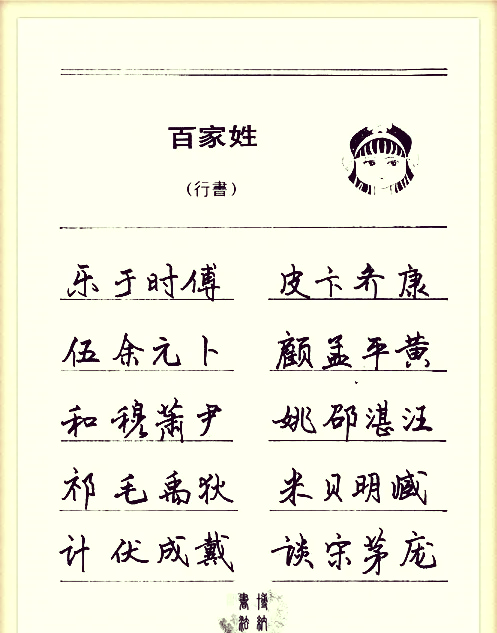 百家姓
(行書)
乐于时傅 皮卞齐康
伍余元卜 顾孟平黄
和穆萧尹 姚邵湛汪
祁毛禹狄 米贝明臧
计伏成戴 谈宋茅庞